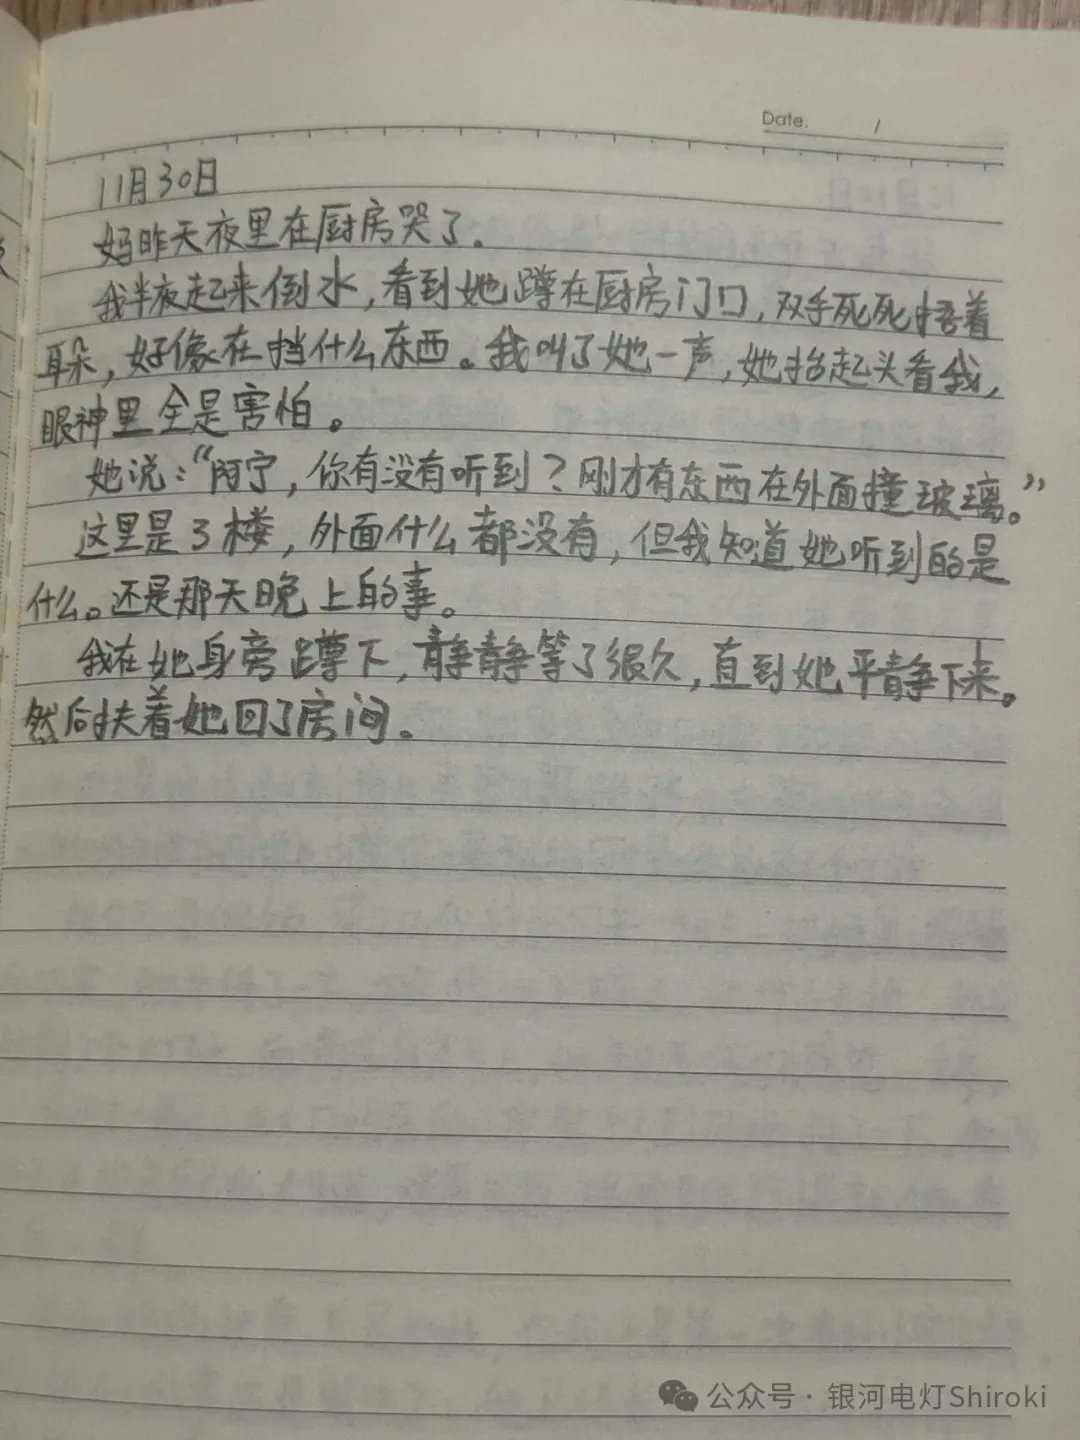 Date. /
11月30日
妈昨天夜里在厨房哭了。
我半夜起来倒水，看到她蹲在厨房门口，双手死死捂着
耳朵，好像在挡什么东西。我叫了她一声，她抬起头看我，
眼神里全是害怕。
她说：“阿宁，你有没有听到？刚才有东西在外面撞玻璃。”
这里是3楼，外面什么都没有，但我知道她听到的是
什么。还是那天晚上的事。
我在她身旁蹲下，静静等了很久，直到她平静下来。
然后扶着她回了房间。
公众号·银河电灯Shiroki